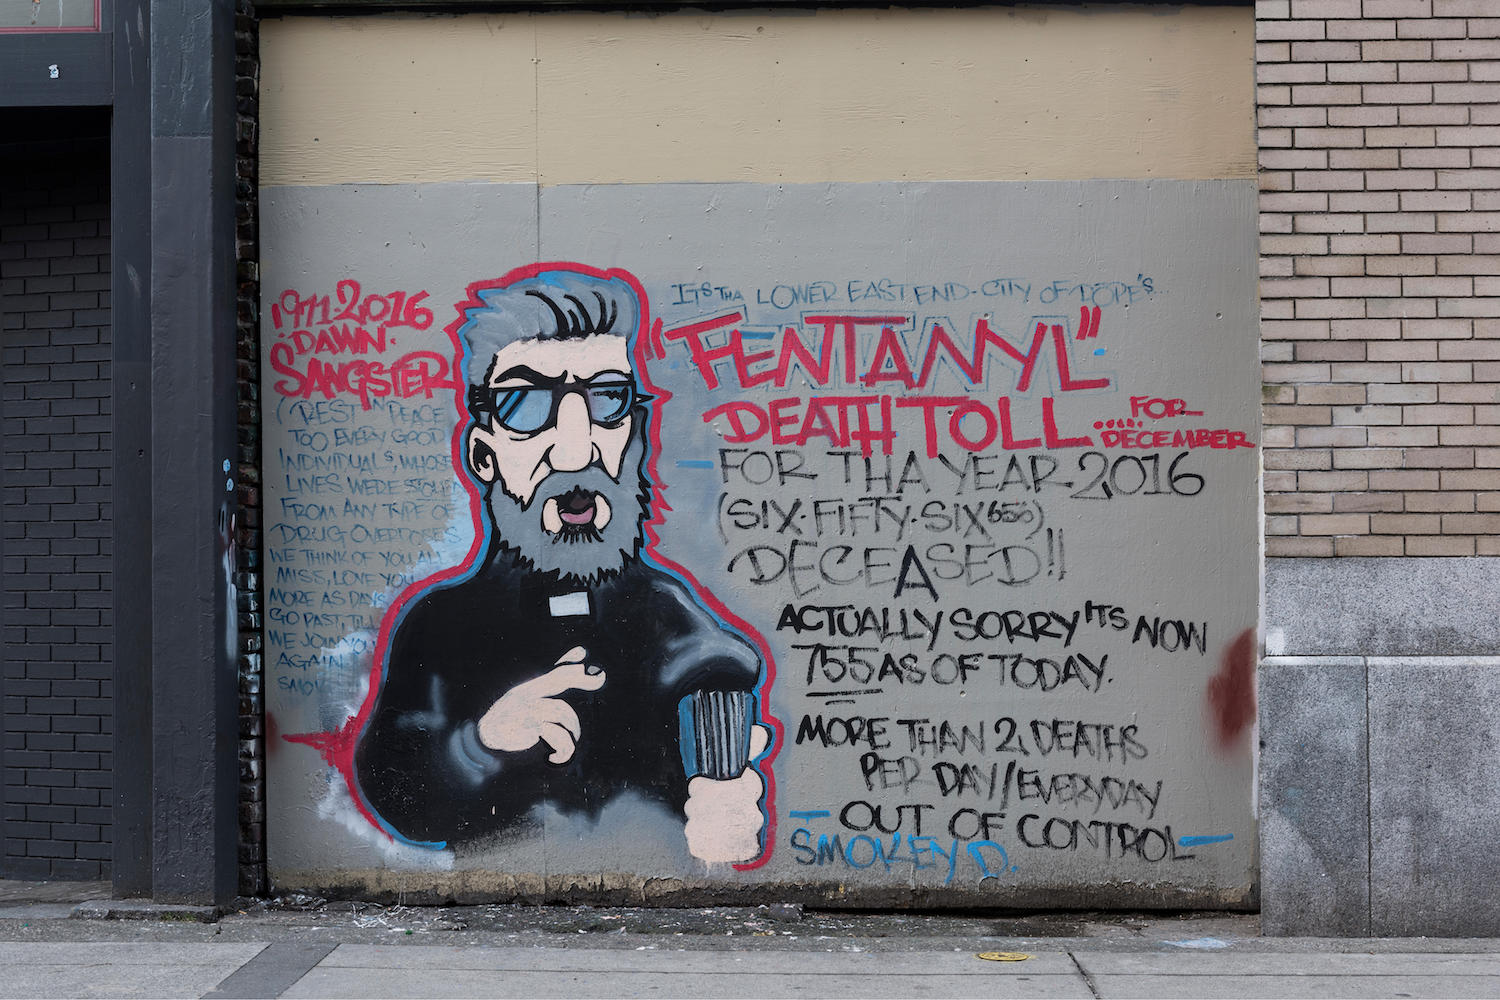 1971-2016
·DAWN·
SANGSTER
(REST IN PEACE
TOO EVERY GOOD
INDIVIDUAL'S, WHOSE
LIVES WEDE STOLEN
FROM ANY TYPE OF
DRUG OVERDOSE'S
WE THINK OF YOU ALL
MISS, LOVE YOU
MORE AS DAYS
GO PAST, TILL
WE JOIN YOU
AGAIN
SMOK
IT'S THA LOWER EAST END-CITY OF DOPE'S
"FENTANYL"
DEATH TOLL ..... FOR
DECEMBER
- FOR THA YEAR 2016
(SIX·FIFTY·SIX 656)
DECEASED!!
ACTUALLY SORRY IT'S NOW
755 AS OF TODAY.
MORE THAN 2 DEATHS
PER DAY//EVERYDAY
- OUT OF CONTROL -
SMOKEY D.